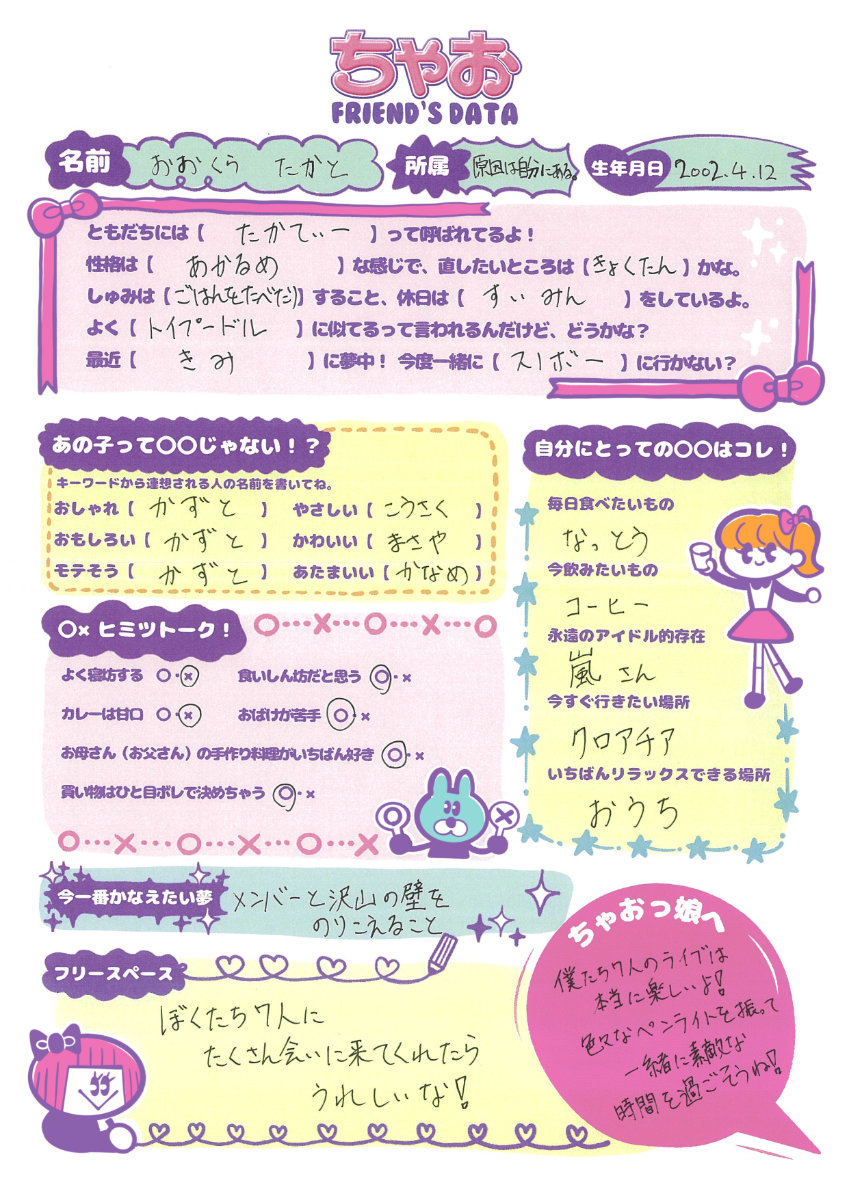 ちゃお
FRIEND'S DATA
名前 おおくら たかと 所属 原因は自分にある。 生年月日 2002.4.12
ともだちには【 たかてぃー 】って呼ばれてるよ！
性格は【 あかるめ 】な感じで、直したいところは【きょくたん】かな。
しゅみは【ごはんをたべだり】すること、休日は【 すいみん 】をしているよ。
よく【トイプードル】に似てるって言われるんだけど、どうかな？
最近【 きみ 】に夢中！ 今度一緒に【スノボー】に行かない？
あの子って〇〇じゃない！？
キーワードから連想される人の名前を書いてね。
おしゃれ【 かずと 】 やさしい【 こうさく 】
おもしろい【 かずと 】 かわいい【 まさや 】
モテそう【 かずと 】 あたまいい【 かなめ 】
〇× ヒミツトーク！
よく寝坊する 〇・× 食いしん坊だと思う 〇・×
カレーは甘口 〇・× おばけが苦手 〇・×
お母さん（お父さん）の手作り料理がいちばん好き 〇・×
買い物はひと目ボレで決めちゃう 〇・×
自分にとっての〇〇はコレ！
毎日食べたいもの
なっとう
今飲みたいもの
コーヒー
永遠のアイドル的存在
嵐さん
今すぐ行きたい場所
クロアチア
いちばんリラックスできる場所
おうち
今一番かなえたい夢
メンバーと沢山の壁を
のりこえること
フリースペース
ぼくたち7人に
たくさん会いに来てくれたら
うれしいな！
ちゃおっ娘へ
僕たち7人のライブは
本当に楽しいよ！
色々なペンライトを振って
一緒に素敵な
時間を過ごそうね！